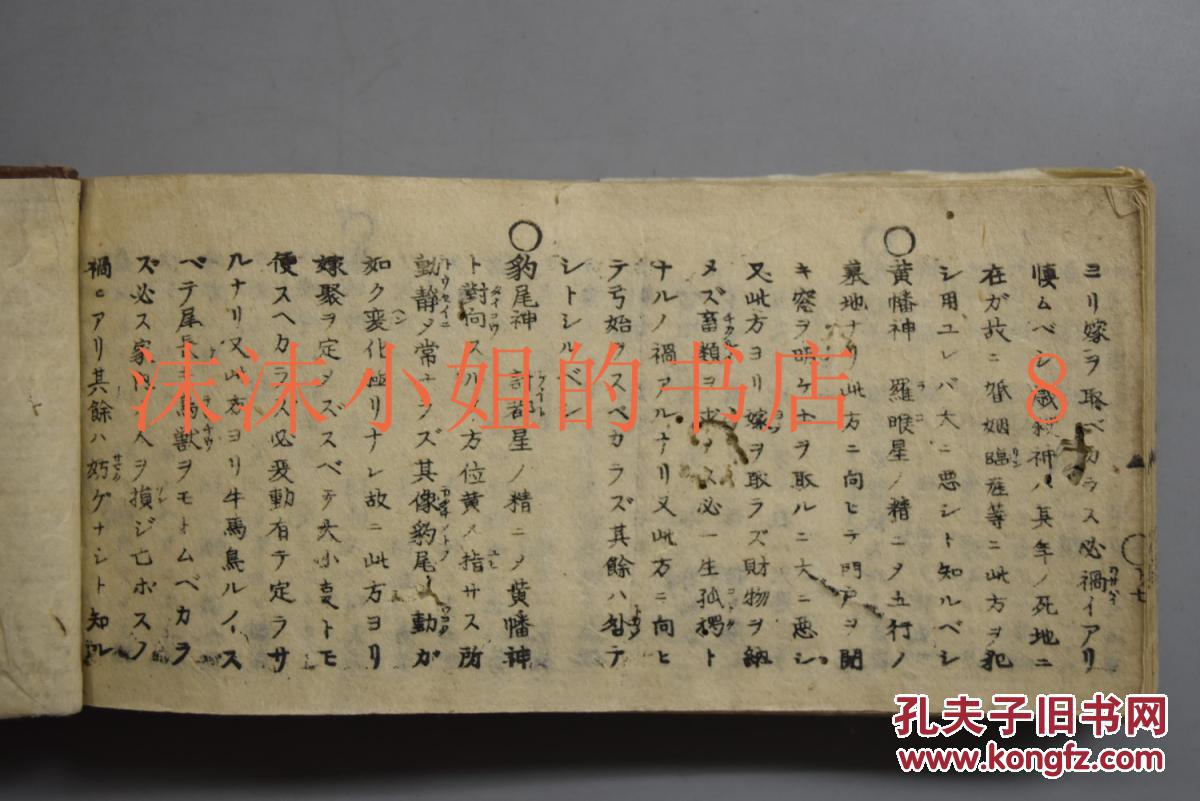 ヨリ嫁ヲ取ベカラス必禍イアリ
慎ムベシ歳殺神ハ其年ノ死地ニ
在ガ故ニ婚姻臨産等ニ此方ヲ犯
シ用ユレバ大ニ悪シト知ルベシ
○黄幡神 羅睺星ノ精ニメ五行ノ
墓地ナリ此方ニ向ヒテ門戸ヲ開
キ窓ヲ明ケ ヲ取ルニ大ニ悪シ
又此方ヨリ嫁ヲ取ラズ財物ヲ納
メズ畜類ヲ求メス必一生孤獨ト
ナルノ禍アルナリ又此方ニ向ヒ
テ弓始ヲスベカラズ其餘ハ テ
シトシルベシ
○豹尾神 計都星ノ精ニメ黄幡神
ト對向スル 方位黄 指サス所
動静メ常ナラズ其像豹尾ノ動ガ
如ク変化極リナレ故ニ此方ヨリ
嫁娶ヲ定メズスベテ大小 トモ
便スヘカラス必変動有テ定ラサ
ルナリ又此方ヨリ牛馬鳥ルノイス
ベテ尾長キ鳥獣ヲモトムベカラ
ズ必ス家内人ヲ損ジ亡ボスノ
禍ヒアリ其餘ハ妨ゲナシト知ル
沫沫小姐的书店 8
孔夫子旧书网
www.kongfz.com